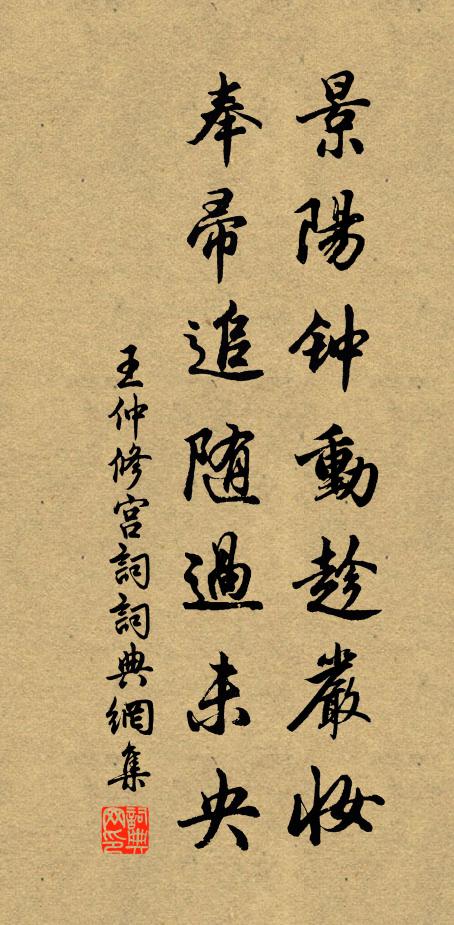 景陽钟動趁嚴妝
奉帚追随過未央
王仲修宫詞詞典網集
詞典网印